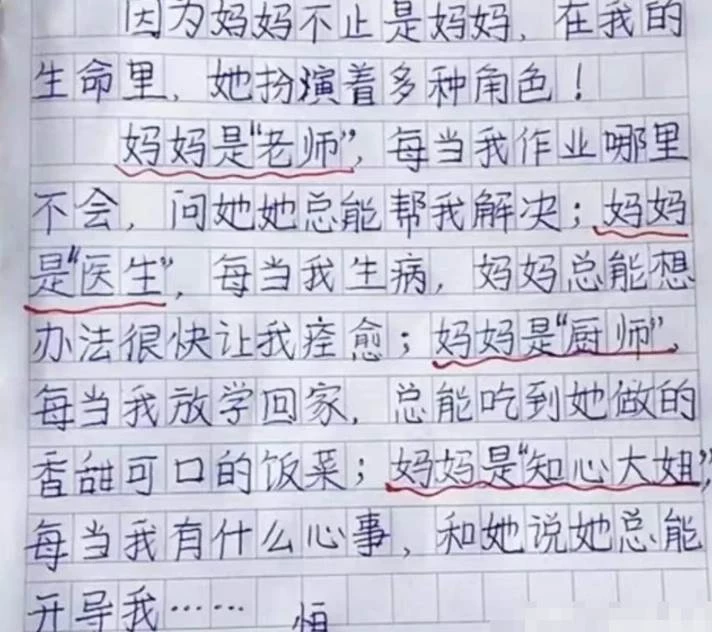 因为妈妈不止是妈妈，在我的
生命里，她扮演着多种角色！
妈妈是“老师”，每当我作业哪里
不会，问她她总能帮我解决；妈妈
是“医生”，每当我生病，妈妈总能想
办法很快让我痊愈；妈妈是“厨师”，
每当我放学回家，总能吃到她做的
香甜可口的饭菜；妈妈是“知心大姐”，
每当我有什么心事，和她说她总能
开导我……